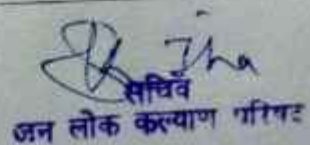 Jha
सचिव
जन लोक कल्याण परिषद